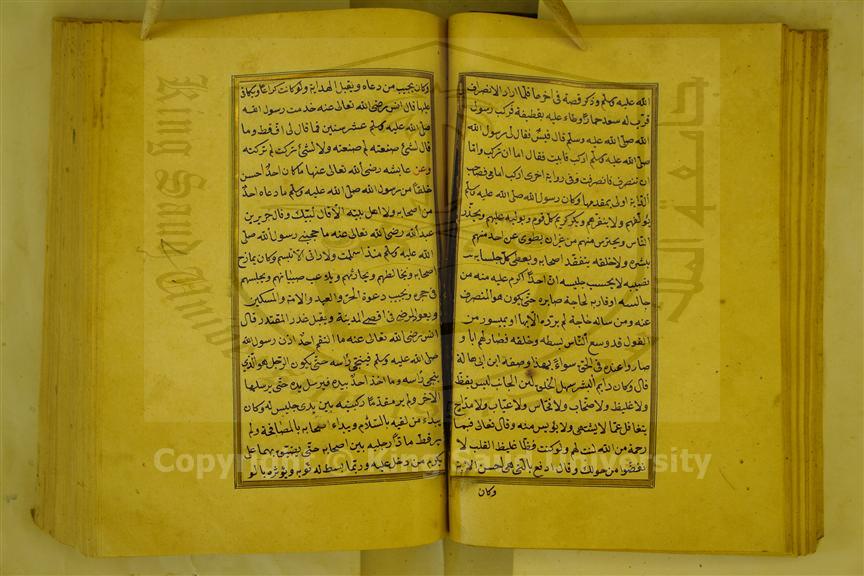 الله عليه وسلم وذكر قصة فى آخرها فلما اراد الانصراف
قرب له سعد حمارًا وطاء عليه بقطيفة فركب رسول
الله صلى الله عليه وسلم قال قيس فقال لى رسول الله
صلى الله عليه وسلم اركب فابيت فقال اما ان تركب واما
ان تنصرف فانصرفت وفى رواية اخرى اركب امامى فصاحب
الدابة اولى بمقدمها وكان رسول الله صلى الله عليه وسلم
يؤلفهم ولا ينفرهم ويكرم كريم كل قوم ويوليه عليهم ويحذر
الناس ويحترس منهم من غير ان يطوى عن احد منهم
بشره ولا خلقه يتفقد اصحابه ويعطى كل جلسايه
نصيبه لا يحسب جليسه ان احدًا اكرم عليه منه من
جالسه او قاربه لحاجة صابره حتى يكون هو المنصرف
عنه ومن ساله حاجة لم يرده الا بها او بميسور من
القول قد وسع الناس بسطه وخلقه فصار لهم ابا و
صاروا عنده فى الحق سواء بهذا وصفه ابن ابى هالة
قال وكان دايم البشر سهل الخلق لين الجانب ليس بفظ
ولا غليظ ولا صخاب ولا فحاش ولا عياب ولا مداح
يتغافل عما لا يشتهى ولا يؤيس منه وقال تعالى فبما
رحمة من الله لنت لهم ولو كنت فظا غليظ القلب لا
نفضوا من حولك وقال ادفع بالتى هى احسن الاية
وكان
وكان يجيب من دعاه ويقبل الهداية ولو كانت كراعا ويكافى
عليها قال انس رضى الله تعالى عنه خدمت رسول الله
صلى الله عليه وسلم عشر سنين فما قال لى اف قط وما
قال لشئ صنعته لم صنعته ولا لشئ تركت لم تركته
وعن عايشه رضى الله تعالى عنها ما كان احد احسن
خلقا من رسول الله صلى الله عليه وسلم ما دعاه احد
من اصحابه ولا اهل بيته الا قال لبيك وقال جرير بن
عبد الله رضى الله تعالى عنه ما حجبنى رسول الله صلى
الله عليه وسلم منذ اسلمت ولا رانى الا تبسم وكان يمازح
اصحابه ويخالطهم ويحادثهم ويداعب صبيانهم ويجلسهم
فى حجره ويجيب دعوة الحر والعبد والامة والمسكين
ويعود المرضى فى اقصى المدينة ويقبل عذر المعتذر قال
انس رضى الله تعالى عنه ما التقم احد اذن رسول الله
صلى الله عليه وسلم فينحى راسه حتى يكون الرجل هو الذى
ينحى راسه وما اخذ احد بيده فيرسل يده حتى يرسلها
الاخر ولم ير مقدمًا ركبتيه بين يدى جليس له وكان
يبداء من لقيه بالسلام ويبداء اصحابه بالمصافحة ولم
ير قط مادًا رجليه بين اصحابه حتى يضيق بهما على
يكرم من دخل عليه وربما بسط له ثوبه ويؤثره بالو
Copyright © King Saud University
King Saud University
جامعة الملك